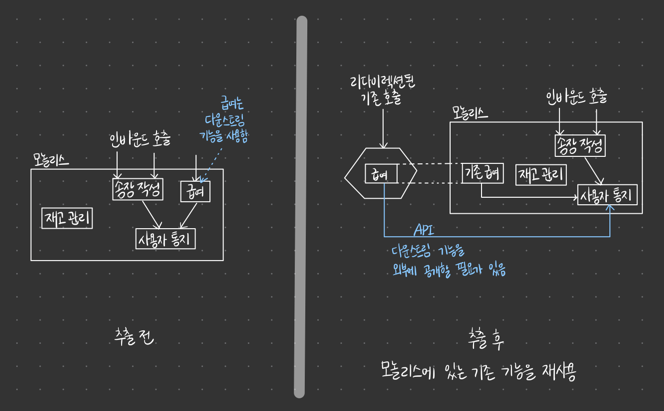 급여는
다운스트림
기능을 사용함
인바운드 호출
모놀리스
송장 작성
급여
재고 관리
사용자 통지
추출 전
리다이렉션된
기존 호출
모놀리스
인바운드 호출
송장 작성
급여
기존 급여
재고 관리
사용자 통지
API
다운스트림 기능을
외부에 공개할 필요가 있음
추출 후
모놀리스에 있는 기존 기능을 재사용